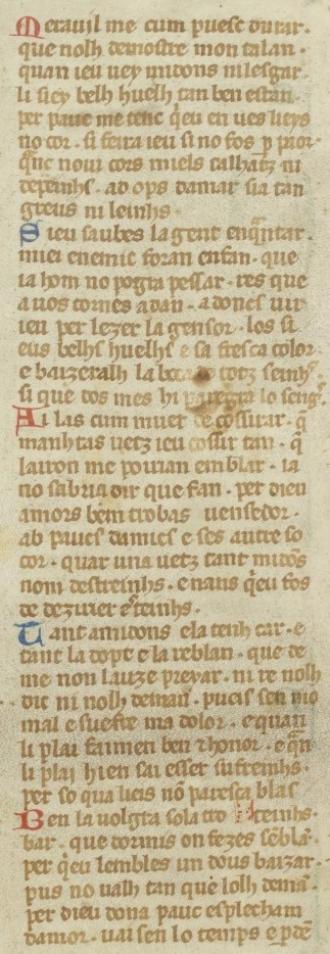 Meravil me cum puesc durar.
que nolh demostre mon talan.
quan ieu vey midons nilesgar.
li siey belh huelh tan ben estan.
per pauc me tenc q̄eu en ves lieys
no cor. si feira ieu si no fos p paor.
q̄nc noui cors miels talhatz ni
depeinhs. ad ops damar sia tan
greus ni leinhs.
S ieu saubes la gent enq̄ntar.
miei enemic foran enfan. que
ia hom no pogra pessar. res que
a uos tornes a dan. adoncs uir
ieu per lezer la gensor. los si
eus belhs huelhs e sa fresca color.
e baizeralh la totz seinhs.
si que dos mes hi paregra lo seng.
Ai las cum muer de cossirar. q̄
manhtas uetz ieu cossir tan. q̄
lairon me pourian emblar. ia
no sabria dir que fan. per dieu
amors bem trobas uensedor.
ab paucs damics e ses autre so
cor. quar una uetz tant midōs
nom destreinhs. enans q̄eu fos
de dezirier esteinhs.
Tant amidons ela tenh car. e
tant la dopt e la reblan. que de
me non lauze preyar. ni re nolh
dic ni nolh deman. pueis sen mō
mal e suefre ma dolor. e quan
li plai faimen ben ⁊ honor. e q̄n
li plai hieu sai esser sufreinhs.
per so qua lieis nō paresca blas
Ben la uolgra sola tro teinhs.
bar. que dormis on fezes sēblā.
per q̄eu lembles un dous baizar.
pus no ualh tan que lolh demā.
per dieu dona pauc esplecham
damor. uai sen lo temps e pdē